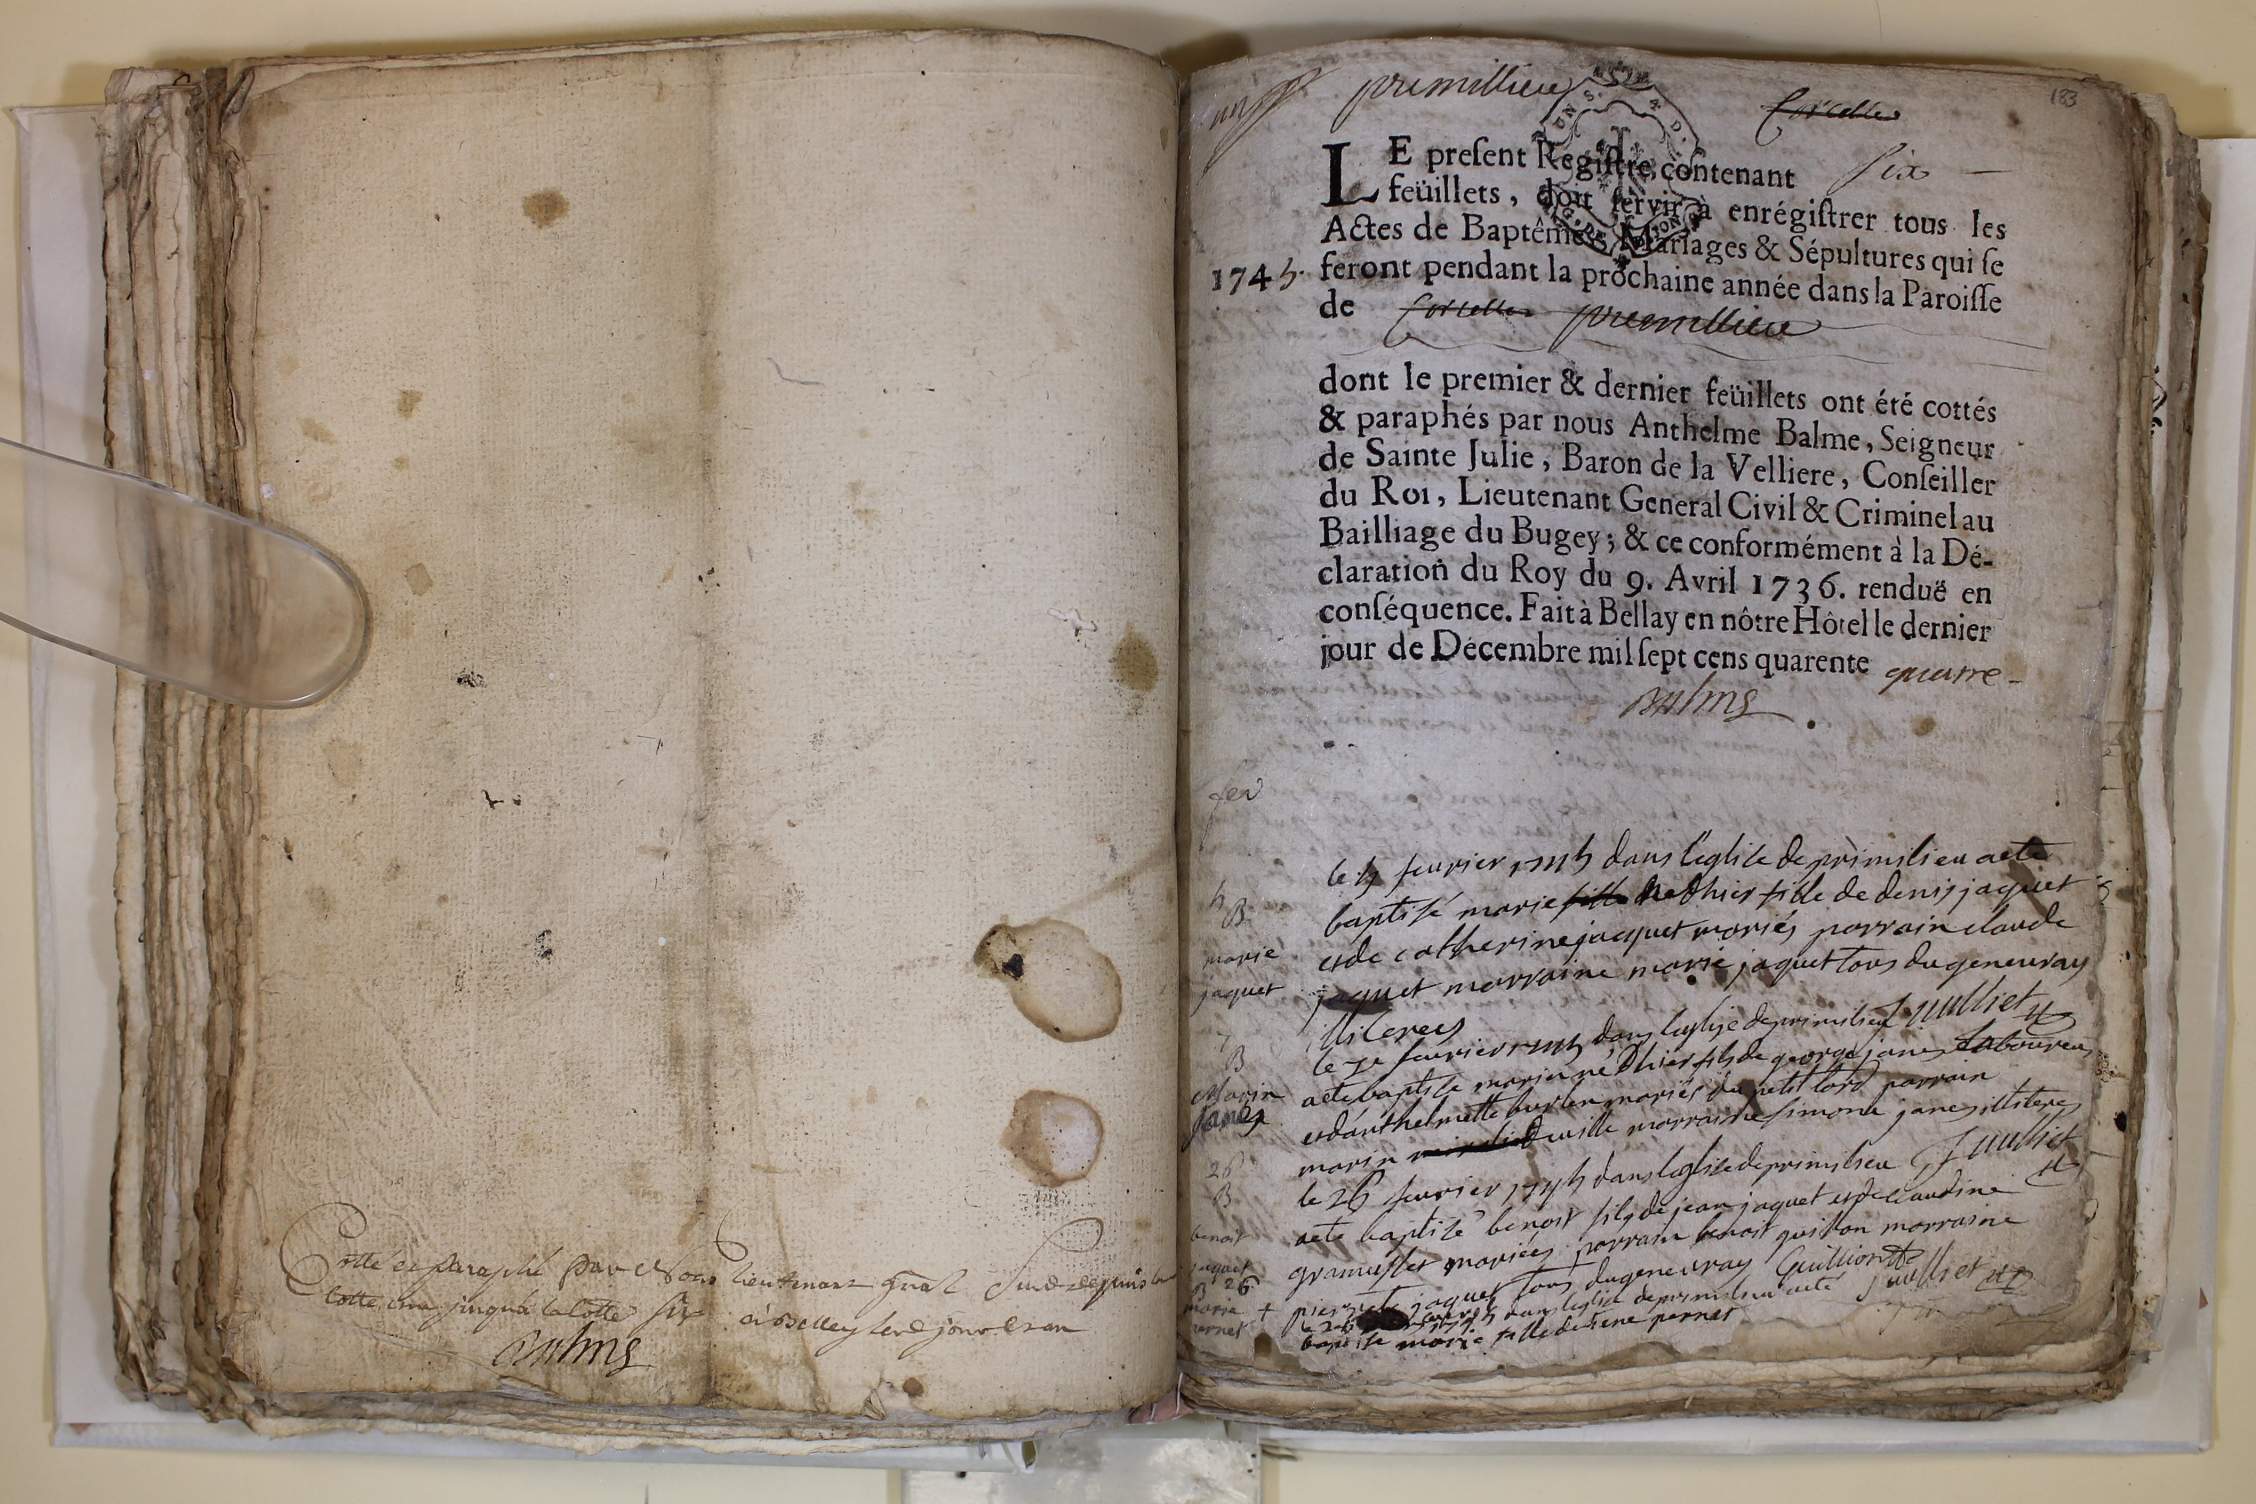 Cotté et paraphé par Nous Lieutenant gnal Juge depuis la
Cotte une jusqu'à la Cotte Six à Belley led. jour et an
Balme
un premillieu
Corcelles
183
LE preſent Regiſtre, contenant six
feüillets, doit ſervir à enrégiſtrer tous les
Actes de Baptêmes, Mariages & Sépultures qui ſe
1745. feront pendant la prochaine année dans la Paroiſſe
de Corcelles premillieu
dont le premier & dernier feüillets ont été cottés
& paraphés par nous Anthelme Balme, Seigneur
de Sainte Julie, Baron de la Velliere, Conſeiller
du Roi, Lieutenant General Civil & Criminel au
Bailliage du Bugey; & ce conformément à la Dé-
claration du Roy du 9. Avril 1736. renduë en
conſéquence. Fait à Bellay en nôtre Hôtel le dernier
jour de Décembre mil ſept cens quarente quatre
Balme
5
B
marie
jaquet
le 5 feurier 1745 dans l'eglise de primilieu aete
baptisé marie fille née hier fille de denis jaquet
et de catherine jacquet mariés parrain claude
jaquet marraine marie jaquet tous du geneuray
illiterees Juilliet
7
B
Marin
Janes
le 7e feurier 1745 dans leglise de primilieu
aete baptisé marin né hier fils de george janes laboureur
et danthelmette mariés du petit parrain
marin marraine simone janes illiteres
Juilliet
26
B
benoit
jaquet
le 26 feurier 1745 dans leglise de primilieu
aete baptisé benoit fils de jean jaquet et de claudine
mariés parrain benoit guillon marraine
pierrette jaquet tous du geneuray Guillion Juilliet
B 26
marie
pernet
+ le 26 1745 dans leglise de primilieu aeté
baptise marie fille de pernet